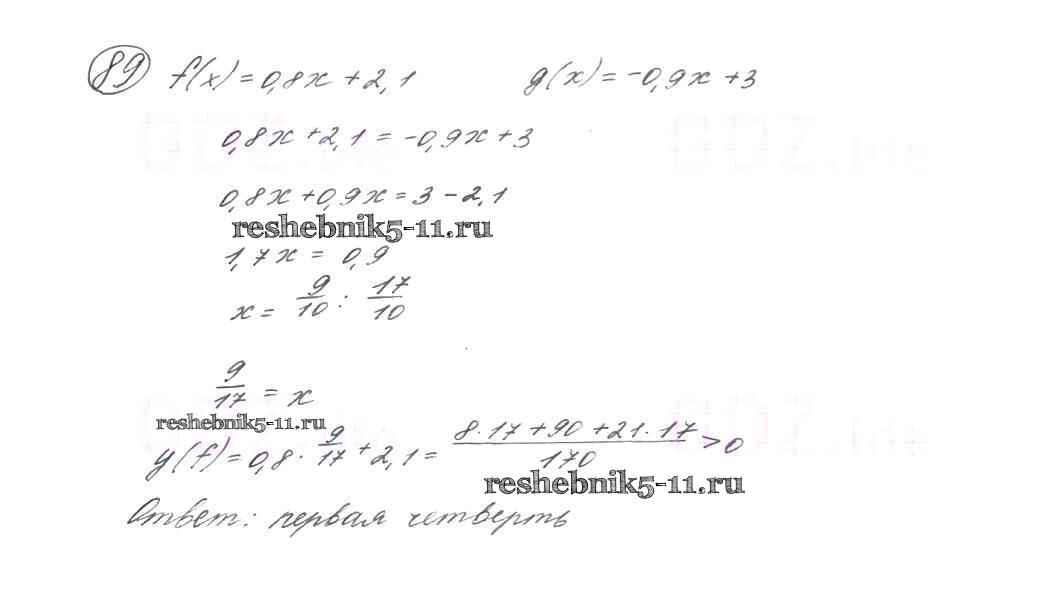 89 f(x) = 0,8x + 2,1 g(x) = -0,9x + 3
0,8x + 2,1 = -0,9x + 3
0,8x + 0,9x = 3 - 2,1
reshebnik5-11.ru
1,7x = 0,9
x = 9/10 : 17/10
9/17 = x
reshebnik5-11.ru
y(f) = 0,8 · 9/17 + 2,1 = (8·17 + 90 + 21·17)/170 > 0
reshebnik5-11.ru
Ответ: первая четверть